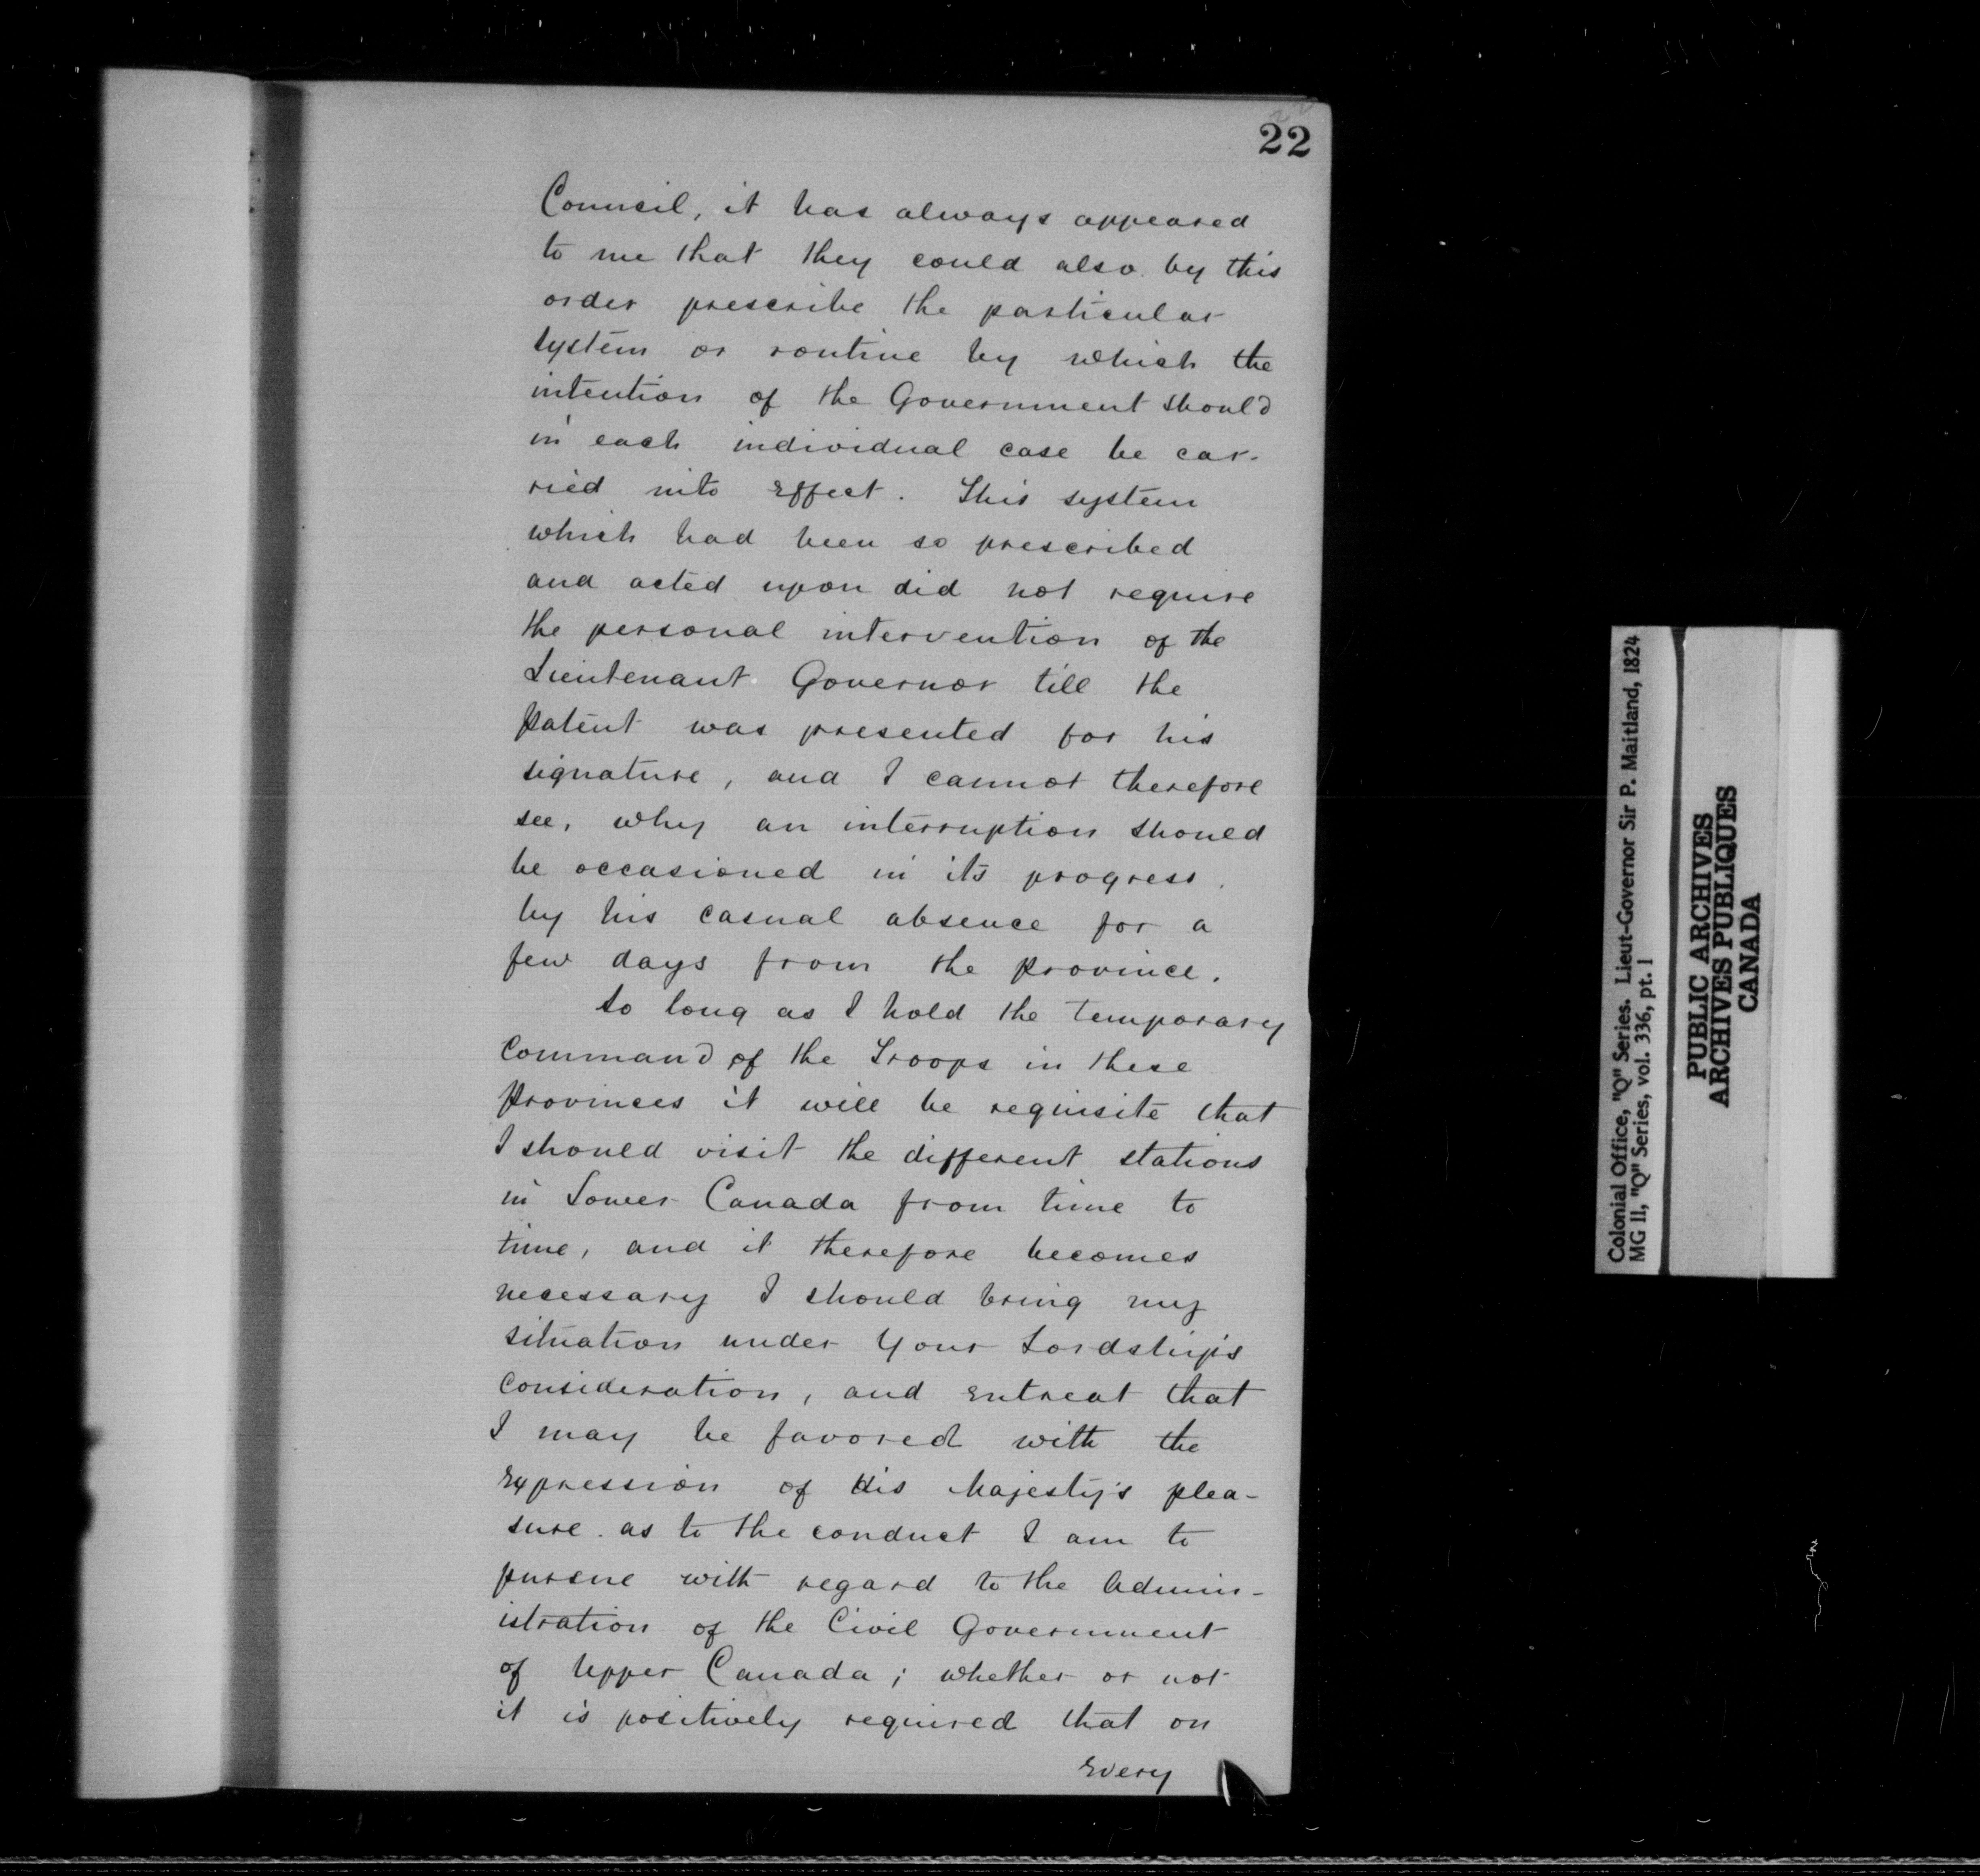 22
Council, it has always appeared
to me that they could also by this
order prescribe the particular
system or routine by which the
intention of the Government should
in each individual case be car-
ried into effect. This system
which had been so prescribed
and acted upon did not require
the personal intervention of the
Lieutenant Governor till the
patent was presented for his
signature, and I cannot therefore
see, why an interruption should
be occasioned in its progress
by his casual absence for a
few days from the province.
So long as I hold the temporary
Command of the Troops in these
Provinces it will be requisite that
I should visit the different stations
in Lower Canada from time to
time, and it therefore becomes
necessary I should bring my
situation under Your Lordship's
consideration, and entreat that
I may be favored with the
expression of His Majesty's plea-
sure as to the conduct I am to
pursue with regard to the Admin-
istration of the Civil Government
of Upper Canada; whether or not
it is positively required that on
every
Colonial Office, "Q" Series. Lieut-Governor Sir P. Maitland, 1824
MG 11, "Q" Series, vol. 336, pt. 1
PUBLIC ARCHIVES
ARCHIVES PUBLIQUES
CANADA